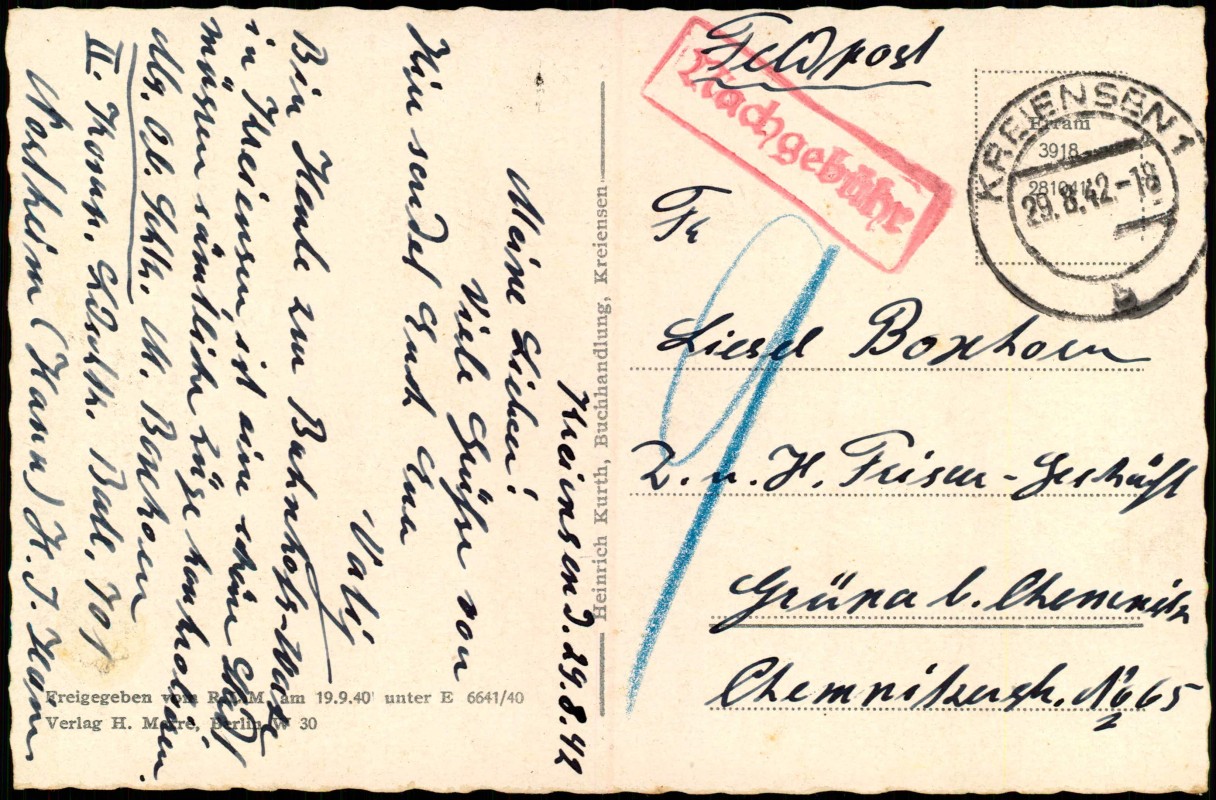 Feldpost
Nachgebühr
KREIENSEN 1
29.8.42.-18
b
Erfani
3918
Fr
Liesel Boxhorn
Z. u. H. Friseur-Geschäft
Grüna b. Chemnitz
Chemnitzerstr. No 65
Heinrich Kurth, Buchhandlung, Kreiensen
Kreiensen D. 29.8.42
Meine Lieben!
Viele Grüße von
Hier sendet Euch Euer
Vati
Bin Heute zur Bahnhofs-Wache
in Kreiensen, ist eine schöne Stadt,
müssen sämtliche Züge kontrolieren.
Abs. Ob. Schtz. M. Boxhorn
II. Komp. Ldsschtz. Batl. 701
Northeim (Hann) H. J. Heim
Freigegeben vom R.L.M. am 19.9.40 unter E 6641/40
Verlag H. Berlin W 30
9